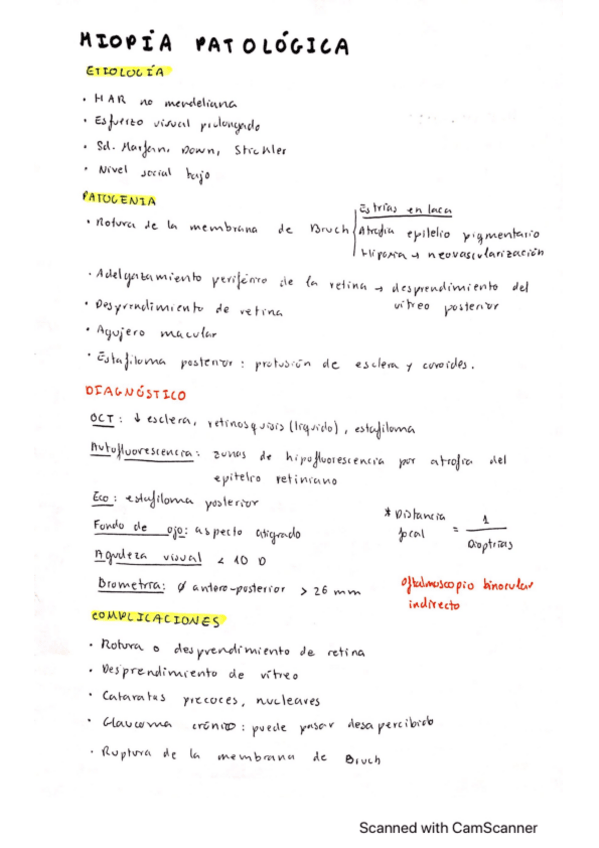 MIOPÍA PATOLÓGICA
ETIOLOGÍA
• HAR no mendeliana
• Esfuerzo visual prolongado
• Sd. Marfan, Down, Stichler
• Nivel social bajo
PATOGENIA
• Rotura de la membrana de Bruch
Estrías en laca
Atrofia epitelio pigmentario
Hipoxia → neovascularización
• Adelgazamiento periférico de la retina → desprendimiento del
vítreo posterior
• Desprendimiento de retina
• Agujero macular
• Estafiloma posterior: protusión de esclera y coroides.
DIAGNÓSTICO
OCT: ↓ esclera, retinosquisis (líquido), estafiloma
Autofluorescencia: zonas de hipofluorescencia por atrofia del
epitelio retiniano
Eco: estafiloma posterior
Fondo de ojo: aspecto atigrado
Agudeza visual < 10 D
Biometría: ∅ antero-posterior > 26 mm
* Distancia focal = 1 / Dioptrías
Oftalmoscopio binocular
indirecto
COMPLICACIONES
• Rotura o desprendimiento de retina
• Desprendimiento de vítreo
• Cataratas precoces, nucleares
• Glaucoma crónico: puede pasar desapercibido
• Ruptura de la membrana de Bruch
Scanned with CamScanner